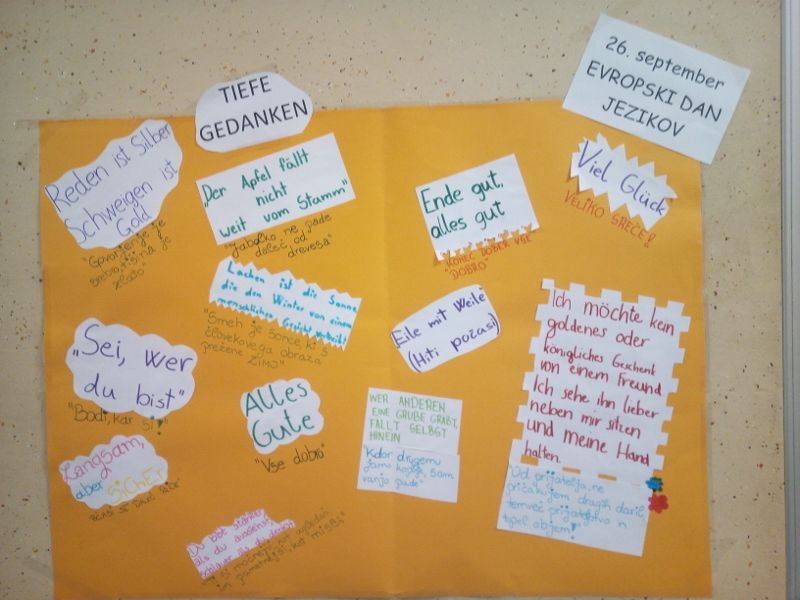 26. september
EVROPSKI DAN
JEZIKOV
TIEFE
GEDANKEN
Reden ist Silber
Schweigen ist
Gold
"Govorjenje je
srebro, tišina je
zlato"
"Der Apfel fällt
nicht
weit vom Stamm"
"Jabolko ne pade
daleč od
drevesa"
Ende gut,
alles gut
"KONEC DOBER VSE
"DOBRO"
Viel Glück
VELIKO SREČE!
Lachen ist die Sonne
die den Winter von einem
menschlichen Gesicht vertreibt
"Smeh je sonce, ki s
človekovega obraza
prežene ZIMO"
Eile mit Weile
(Hiti počasi)
Ich möchte kein
goldenes oder
königliches Geschenk
von einem Freund
Ich sehe ihn lieber
neben mir sitzen
und meine Hand
halten.
"Od prijatelja ne
pričakujem dragih daril
temveč prijateljstvo n
topel objem!"
"Sei, wer
du bist"
"Bodi, kar si!"
Alles
Gute
"Vse dobro"
WER ANDEREN
EINE GRUBE GRÄBT,
FÄLLT SELBST
HINEIN
"Kdor drugemu
jamo koplje, sam
vanjo pade"
Langsam,
aber
SiCHEr
Du bist stärker
als du aussiehst,
schlauer als du denkst
si močnejši, kot
in pametnejši, kot misliš"